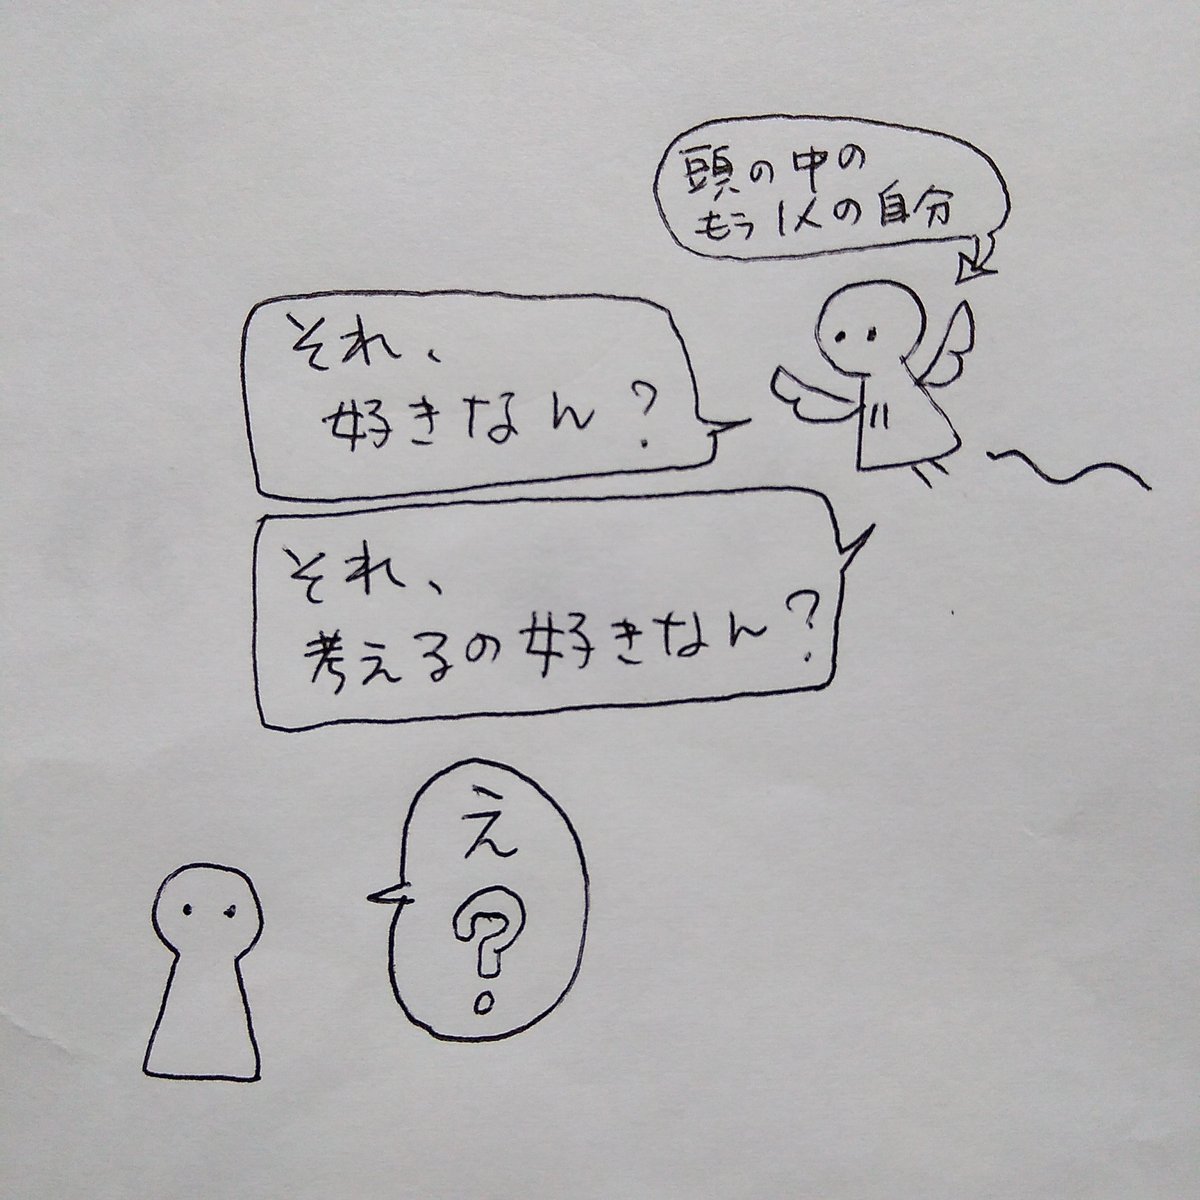 頭の中の
もう1人の自分
それ、
好きなん?
それ、
考えるの好きなん?
え
?